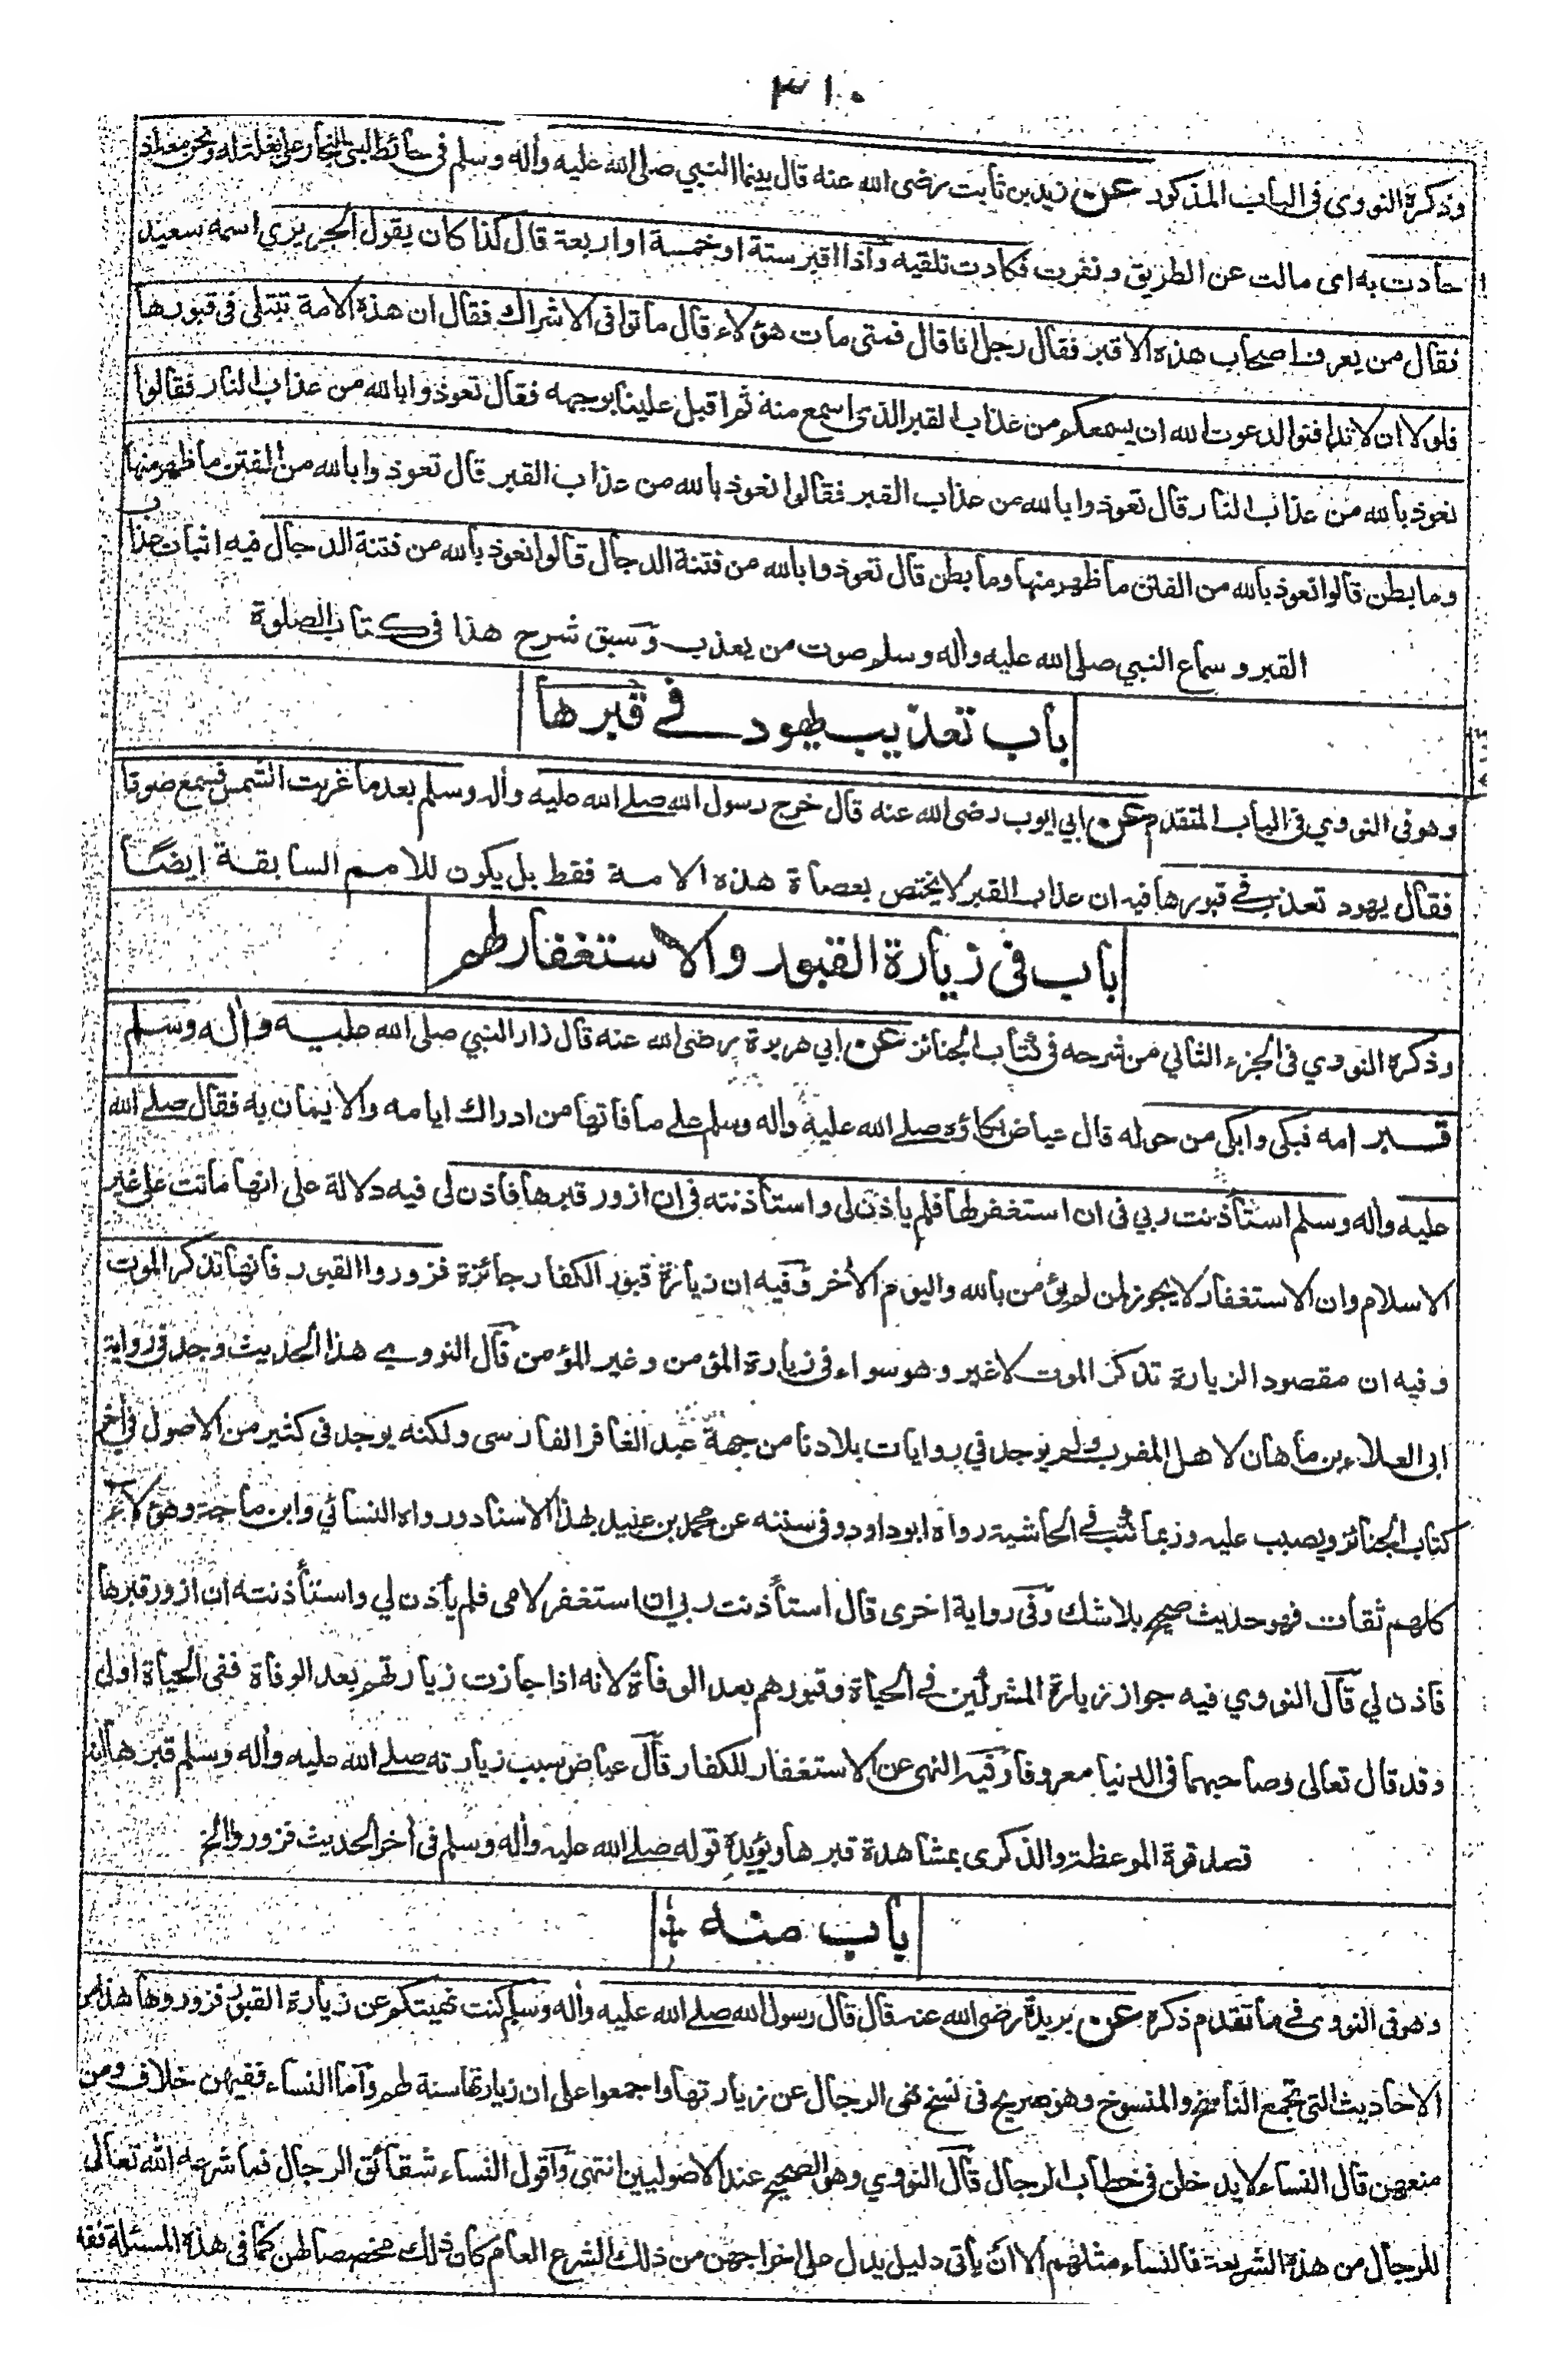 ٣١٠
وذكره النووى فى الباب المذكور عن زيد بن ثابت رضى الله عنه قال بينما النبي صلى الله عليه وأله وسلم فى حائط لبني النجار على بغلة له ونحن معه اذ
حادت به اى مالت عن الطريق ونفرت فكادت تلقيه وأذا اقبر ستة اوخمسة او اربعة قال كذا كان يقول الجريري اسمه سعيد
فقال من يعرف اصحاب هذه الاقبر فقال رجل انا قال فمتى مات هؤلاء قال ماتوا فى الاشراك فقال ان هذه الامة تبتلى فى قبورها
فلولا ان لا تدافنوا لدعوت الله ان يسمعكم من عذاب القبر الذى اسمع منه ثم اقبل علينا بوجهه فقال تعوذوا بالله من عذاب النار فقالوا
نعوذ بالله من عذاب النار قال تعوذوا بالله من عذاب القبر فقالوا نعوذ بالله من عذاب القبر قال تعوذوا بالله من الفتن ما ظهر منها
وما بطن قالوا نعوذ بالله من الفتن ما ظهر منها وما بطن قال تعوذوا بالله من فتنة الدجال قالوا نعوذ بالله من فتنة الدجال فيه اثبات عذاب
القبر وسماع النبي صلى الله عليه وأله وسلم صوت من يعذب وسبق شرح هذا فى كتاب الصلوة
باب تعذيب يهود في قبرها
وهو فى النووي فى الباب المتقدم عن ابي ايوب رضى الله عنه قال خرج رسول الله صلے الله عليه وأله وسلم بعد ما غربت الشمس فسمع صوتا
فقال يهود تعذب في قبورها فيه ان عذاب القبر لا يختص بعصاة هذه الامة فقط بل يكون للامم السابقة ايضًا
باب فى زيارة القبور والاستغفار لهم
وذكره النووي فى الجزء الثاني من شرحه فى كتاب الجنائز عن ابي هريرة رضى الله عنه قال زار النبي صلى الله عليه وأله وسلم
قبر امه فبكى وابكى من حوله قال عياض بكاؤه صلے الله عليه وأله وسلم على ما فاتها من ادراك ايامه والايمان به فقال صلے الله
عليه وأله وسلم استأذنت ربي فى ان استغفر لها فلم ياذن لى واستأذنته فى ان ازور قبرها فاذن لى فيه دلالة على انها ماتت على غير
الاسلام وان الاستغفار لا يجوز لمن لم يؤمن بالله واليوم الأخر وفيه ان زيارة قبور الكفار جائزة فزوروا القبور فانها تذكر الموت
وفيه ان مقصود الزيارة تذكر الموت لا غير وهو سواء فى زيارة المؤمن وغير المؤمن قال النووي هذا الحديث وجد فى رواية
ابى العلاء بن ماهان لاهل المغرب ولم يوجد في روايات بلادنا من جهة عبد الغافر الفارسى ولكنه يوجد فى كثير من الاصول فى أخر
كتاب الجنائز ويصبب عليه وربما كتب في الحاشية رواه ابو داود فى سننه عن محمد بن عبيد بهذا الاسناد ورواه النسائي وابن ماجة وهؤلاء
كلهم ثقات فهو حديث صحيح بلا شك وفى رواية اخرى قال استأذنت ربي ان استغفر لامى فلم يأذن لي واستأذنته ان ازور قبرها
فاذن لي قال النووي فيه جواز زيارة المشركين في الحياة وقبورهم بعد الوفاة لانه اذا جازت زيارتهم بعد الوفاة ففى الحياة اولى
وقد قال تعالى وصاحبهما فى الدنيا معروفا وفيه النهى عن الاستغفار للكفار قال عياض سبب زيارته صلے الله عليه وأله وسلم قبرها انه
قصد قوة الموعظة والذكرى بمشاهدة قبرها ويؤيده قوله صلے الله عليه وأله وسلم فى أخر الحديث فزوروا الخ
باب منه
وهو فى النووى في ما تقدم ذكره عن بريدة رضى الله عنه قال قال رسول الله صلے الله عليه وأله وسلم كنت نهيتكم عن زيارة القبور فزوروها هذا من
الاحاديث التى تجمع الناسخ والمنسوخ وهو صريح فى نسخ نهى الرجال عن زيارتها واجمعوا على ان زيارتها سنة لهم وأما النساء ففيهن خلاف ومن
منعهن قال النساء لا يدخلن فى خطاب الرجال قال النووي وهو الصحيح عند الاصوليين انتهى وأقول النساء شقائق الرجال فما شرعه الله تعالى
للرجال من هذه الشريعة فالنساء مثلهم الا ان يأتى دليل يدل على اخراجهن من ذلك الشرع العام كان ذلك مخصصا لهن كما فى هذه المسئلة فقد